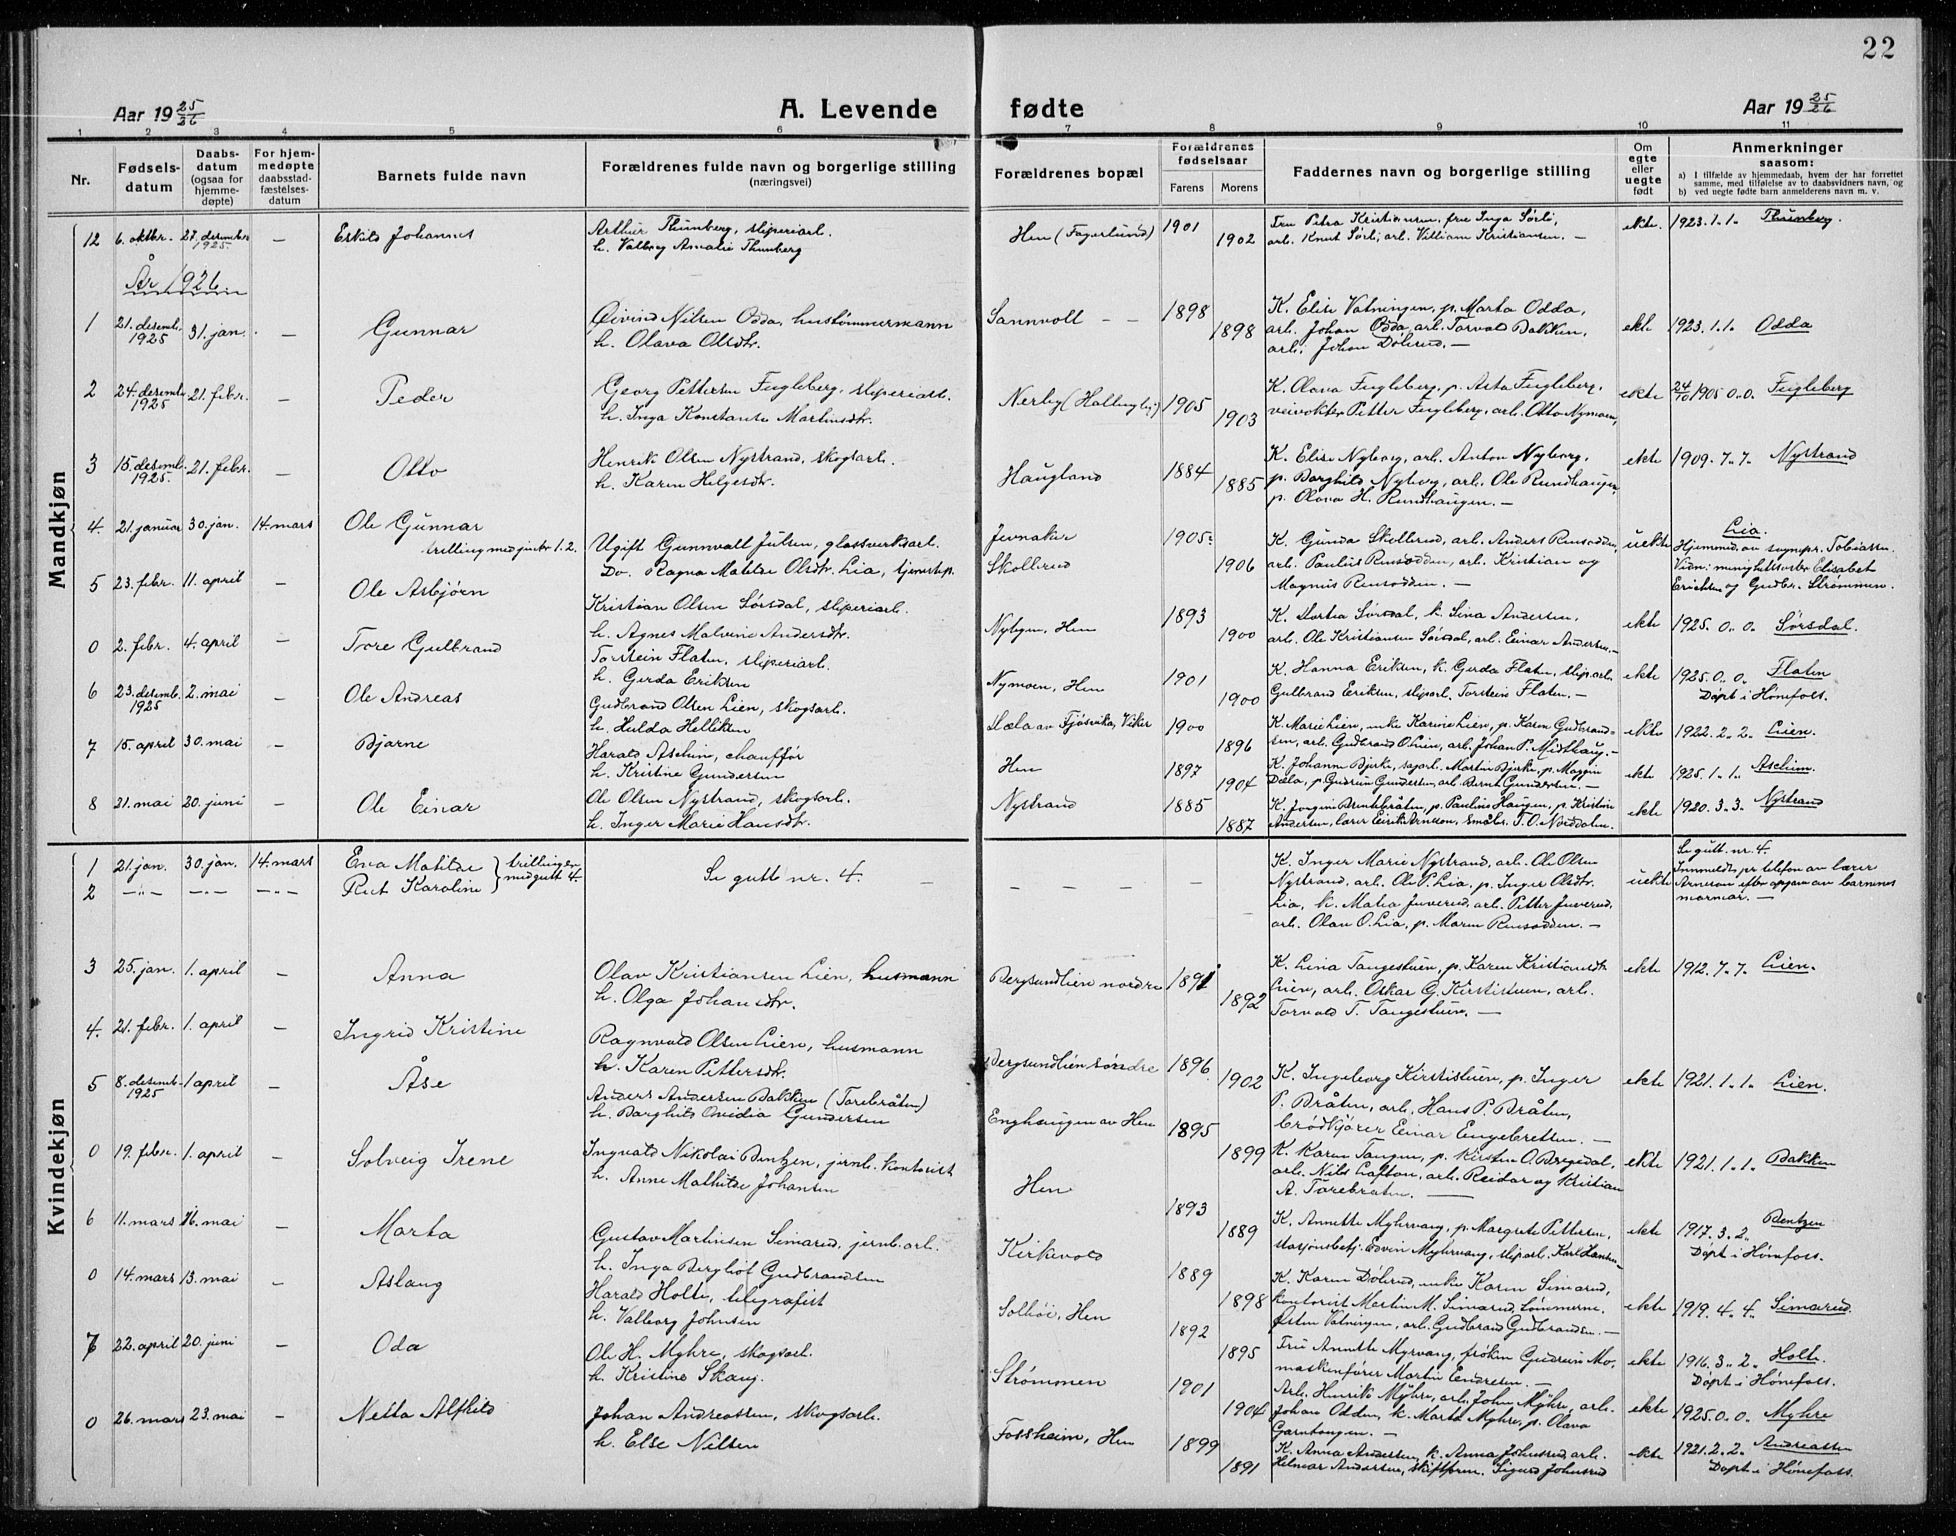 22
Aar 19 25/26
A. Levende fødte
Aar 19 25/26
1 2 3 4 5 6 7 8 9 10 11
Nr.
Fødsels-datum
Daabs-datum (ogsaa for hjemme-døpte)
For hjem-medøpte daabsstad-fæstelses-datum
Barnets fulde navn
Forældrenes fulde navn og borgerlige stilling (næringsvei)
Forældrenes bopæl
Forældrenes fødselsaar
Farens Morens
Faddernes navn og borgerlige stilling
Om egte eller uegte født
Anmerkninger saasom:
a) I tilfælde av hjemmedaab, hvem der har forrettet samme, med tilføielse av to daabsvidners navn, og
b) ved uegte fødte barn anmelderens navn m. v.
Mandkjøn
12 6. oktbr. 27. desember 1925. — Eskild Johannes
Arthur Thunberg, sliperiarb.
h. Valborg Amalie Thunberg
Hen (Fagerlund) 1901 1902
Fru Petra Kristiansen, frue Inga Sørli,
arb. Knut Sørli, arb. Villiam Kristiansen. —
ekte. 1923. 1. 1. Thunberg.
År 1926.
1 21. desemb. 1925 31. jan. — Gunnar
Øivind Nilsen Odda, hustømmermann
h. Olava Olsdtr.
Sannvoll — — 1898 1898
K. Elise Vatningen, p. Marta Odda,
arb. Johan Odda, arb. Torvald Bakken,
arb. Johan Dølerud. —
ekte 1923. 1. 1. Odda
2 24. desemb. 1925 21. febr. — Peder
Georg Pettersen Fugleberg, sliperiarb.
h. Inga Konstanse Martinsdtr.
Nerby (Hallingby) 1905 1903
K. Olava Fugleberg, p. Asta Fugleberg,
veivokter Petter Fugleberg, arb. Otto Nymoen,
ekte 24/10 1905 0. 0. Fugleberg
3 15. desemb. 1925. 21. febr. — Otto
Henrik Olsen Nystrand, skogsarb.
h. Karen Helgesdtr.
Haugland 1884 1885
K. Elise Nyborg, arb. Anton Nyborg,
p. Borghild Nyborg, arb. Ole Rundhaugen,
p. Olava H. Rundhaugen. —
ekte 1909. 7. 7. Nystrand
4. 21. januar 30. jan. 14. mars Ole Gunnar
trilling med jenter 1. 2.
Ugift Gunnvall Julsen, glassverksarb.
Do. Ragna Matilde Olsdtr. Lia, tjenestep.
Jevnaker
Skollerud
1905. 1906
K. Gunda Skollerud, arb. Anders Rensødden,
arb. Paulus Rensødden, arb. Kristian og
Magnus Rensødden. —
uekte Lia.
Hjemmed. av sognepr. Tobiassen.
Vidn: menighetssøster Elisabet
Erichsen og Gudbr. Strømmen.
5 23. febr. 11. april — Ole Asbjørn
Kristian Olsen Sørsdal, sliperiarb.
h. Agnes Malvine Andersdtr.
Nybyen, Hen 1893 1900
K. Dortea Sørsdal, k. Lina Andersen,
arb. Ole Kristiansen Sørsdal, arb. Einar Andersen. —
ekte 1925. 0. 0. Sørsdal.
0 2. febr. 4. april — Tore Gulbrand
Torstein Flaten, sliperiarb.
h. Gerda Eriksen
Nymoen, Hen 1901 1900
K. Hanna Eriksen, k. Gerda Flaten, sliparb.
Gulbrand Eriksen, sliparb. Torstein Flaten. —
ekte 1925. 0. 0. Flaten
Døpt i Hønefoss.
6 23. desemb. 1925 2. mai — Ole Andreas
Gudbrand Olsen Lien, skogsarb.
h. Hulda Helliksen
Dæla av Fjøsvika, Viker 1900 1896
K. Marie Lien, enke Karine Lien, p. Karen Gudbrand-
sen, arb. Gudbrand O. Lien, arb. Johan P. Midthaug. —
ekte 1922. 2. 2. Lien.
7 15. april 30. mai — Bjarne
Harald Aschim, chauffør
h. Kristine Gundersen
Hen 1897 1904
K. Johanne Bjerke, sagarb. Martin Bjerke, p. Maggin
Dæla, p. Gudrun Gundersen, arb. Bernt Gundersen. —
ekte 1925. 1. 1. Aschim.
8 21. mai 20. juni — Ole Einar
Ole Olsen Nystrand, skogsarb.
h. Inger Marie Hansdtr.
Nystrand 1885 1887
K. Jørgine Brenkbråten, p. Pauline Haugen, p. Kristine
Andersen, lærer Eirik Arneson, småbr. T. O. Norddalen.
ekte 1920. 3. 3. Nystrand
Kvindekjøn
1 21. jan. 30. jan. 14. mars Eva Matilde
2 —"— —"— —"— Rut Karoline
trillingen med gutt 4.
Se gutt nr. 4. —
— — — — —
K. Inger Marie Nystrand, arb. Ole Olsen
Nystrand, arb. Ole P. Lia, p. Inger Olsdtr.
Lia, k. Matea Juverud, arb. Petter Juverud,
arb. Olav O. Lia, p. Maren Rensødden. —
uekte
Se gutt. nr. 4.
Innmeldt pr telefon av lærer
Arneson efter opgave av barnenes
mormor. —
3 25. jan. 1. april — Anna
Olav Kristiansen Lien, husmann
h. Olga Johansdtr.
Bergsundlien nordre 1891 1892
K. Lina Tangestuen, p. Karen Kristiansdtr
Lien, arb. Oskar G. Kirstistuen, arb.
Torvald T. Tangestuen. —
ekte 1912. 7. 7. Lien.
4. 21. febr. 1. april — Ingrid Kristine
Ragnvald Olsen Lien, husmann
h. Karen Pettersdtr.
Bergsundlien søndre 1896 1902
K. Ingeborg Kirstistuen, p. Inger
P. Bråten, arb. Hans P. Bråten,
brødkjører Einar Engebretsen. —
ekte 1921. 1. 1. Lien.
5 8. desemb. 1925 1 april — Åse
Anders Andersen Bakken (Torebråten)
h. Borghild Ovidia Gundersen
Enghaugen av Hen 1895 1899
K. Karen Tangen, p. Kirsten O. Bergedal,
arb. Nils Lafton, arb. Reidar og Kristian
A. Torebråten. —
ekte 1921. 1. 1. Bakken
0 19. febr. 1. april — Solveig Irene
Ingvald Nikolai Bentzen, jernb. kontorist
h. Anne Mathilde Johansen
Hen 1893 1889
K. Annette Myhrvang, p. Margrete Pettersen,
stasjonsbetj. Edvin Myhrvang, sliparb. Karl Hansen —
ekte 1917. 3. 2. Bentzen
Døpt i Hønefoss.
6 11. mars 16. mai — Marta
Gustav Martinsen Simarud, jernb. arb.
h. Inga Bergliot Gudbrandsen
Kirkevold 1889 1898
K. Karen Dølerud, enke Karen Simarud,
kontorist Martin M. Simarud, tømmerm.
Østen Vatningen, arb. Gudbrand Gudbrandsen. —
ekte 1919. 4. 4. Simarud.
0 14. mars 13. mai — Aslaug
Harald Holte, telegrafist
h. Valborg Johnsen
Solhøi, Hen 1892 1895
Fru Annette Myrvang, frøken Gudrun Mo,
maskenfører Martin Endresen. —
ekte 1916. 3. 2. Holte.
Døpt i Hønefoss.
7 22. april 20. juni — Oda
Ole H. Myhre, skogsarb.
h. Kristine Skaug.
Strømmen 1901 1904
Arb. Henrik Myhre, arb. John Myhre, arb.
Johan Odden, k. Marta Myhre, p. Olava
Garntangen. —
ekte 1925. 0. 0. Myhre
0 26. mars 23. mai — Netta Alfhild
Johan Andreassen, skogsarb.
h. Else Nilsen
Fossheim, Hen 1899 1891
K. Anna Andersen, k. Anna Johnsrud, arb.
Helmar Andersen, skiftform. Sigurd Johnsrud
ekte 1921. 2. 2. Andreassen
Døpt i Hønefoss.